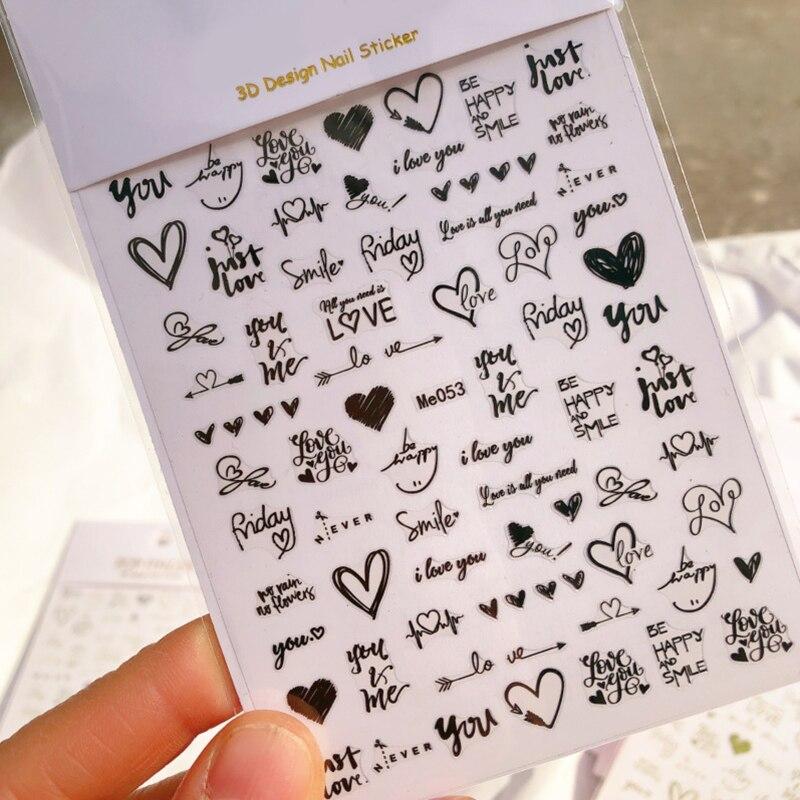 3D Design Nail Sticker
just
love
BE
HAPPY
AND
SMILE
no rain
no flowers
Love
you
be
happy
you
i love you
you!
NEVER
you
Love is all you need
just
love
Smile
Friday
Love
All you need is
LOVE
love
Friday
you
you
&
me
lo ve
Me053
you
&
me
BE
HAPPY
AND
SMILE
just
love
Love
you
be
happy
i love you
Love is all you need
Friday
NEVER
Smile
you!
love
Love
no rain
no flowers
i love you
be
happy
you
you
&
me
lo ve
Love
you
BE
HAPPY
AND
SMILE
Love
you
just
love
NEVER
you